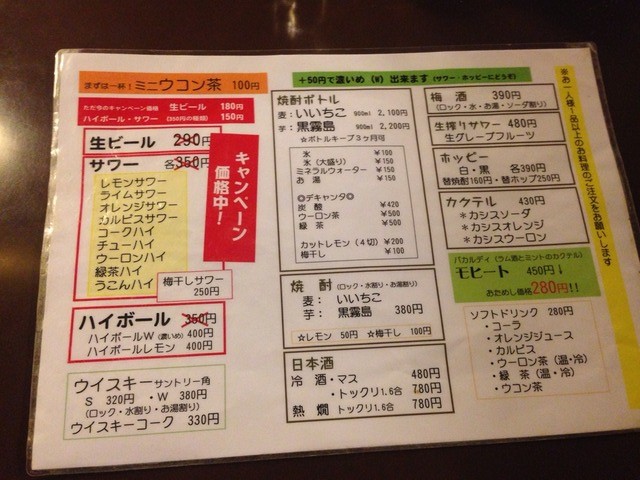 まずは一杯！ミニウコン茶 100円
ただ今のキャンペーン価格 生ビール 180円
ハイボール・サワー (350円の種類) 150円
生ビール 290円
サワー 各350円
レモンサワー
ライムサワー
オレンジサワー
カルピスサワー
コークハイ
チューハイ
ウーロンハイ
緑茶ハイ
うこんハイ
梅干しサワー
250円
キャンペーン
価格中！
ハイボール 350円
ハイボールW (濃いめ) 400円
ハイボールレモン 400円
ウイスキー サントリー角
S 320円 ・W 380円
(ロック・水割り・お湯割り)
ウイスキーコーク 330円
＋50円で濃いめ (W) 出来ます (サワー・ホッピーにどうぞ)
焼酎ボトル
麦：いいちこ 900ml 2,100円
芋：黒霧島 900ml 2,200円
☆ボトルキープ3ヶ月可
氷 ¥100
氷(大盛り) ¥150
ミネラルウォーター ¥150
お湯 ¥150
◎デキャンタ◎
炭酸 ¥420
ウーロン茶 ¥500
緑茶 ¥500
カットレモン(4切) ¥200
梅干し ¥100
焼酎 (ロック・水割り・お湯割り)
麦：いいちこ
芋：黒霧島 380円
☆レモン 50円 ☆梅干し 100円
日本酒
冷酒・マス 480円
・トックリ1.6合 780円
熱燗 トックリ1.6合 780円
梅酒 390円
(ロック・水・お湯・ソーダ割り)
生搾りサワー 480円
生グレープフルーツ
ホッピー
白・黒 各390円
替焼酎160円・替ホップ250円
カクテル 430円
＊カシスソーダ
＊カシスオレンジ
＊カシスウーロン
バカルディ (ラム酒とミントのカクテル)
モヒート 450円↓
おためし価格280円!!
ソフトドリンク 280円
・コーラ
・オレンジジュース
・カルピス
・ウーロン茶(温・冷)
・緑茶(温・冷)
・ウコン茶
※お一人様1品以上のお料理のご注文をお願いします